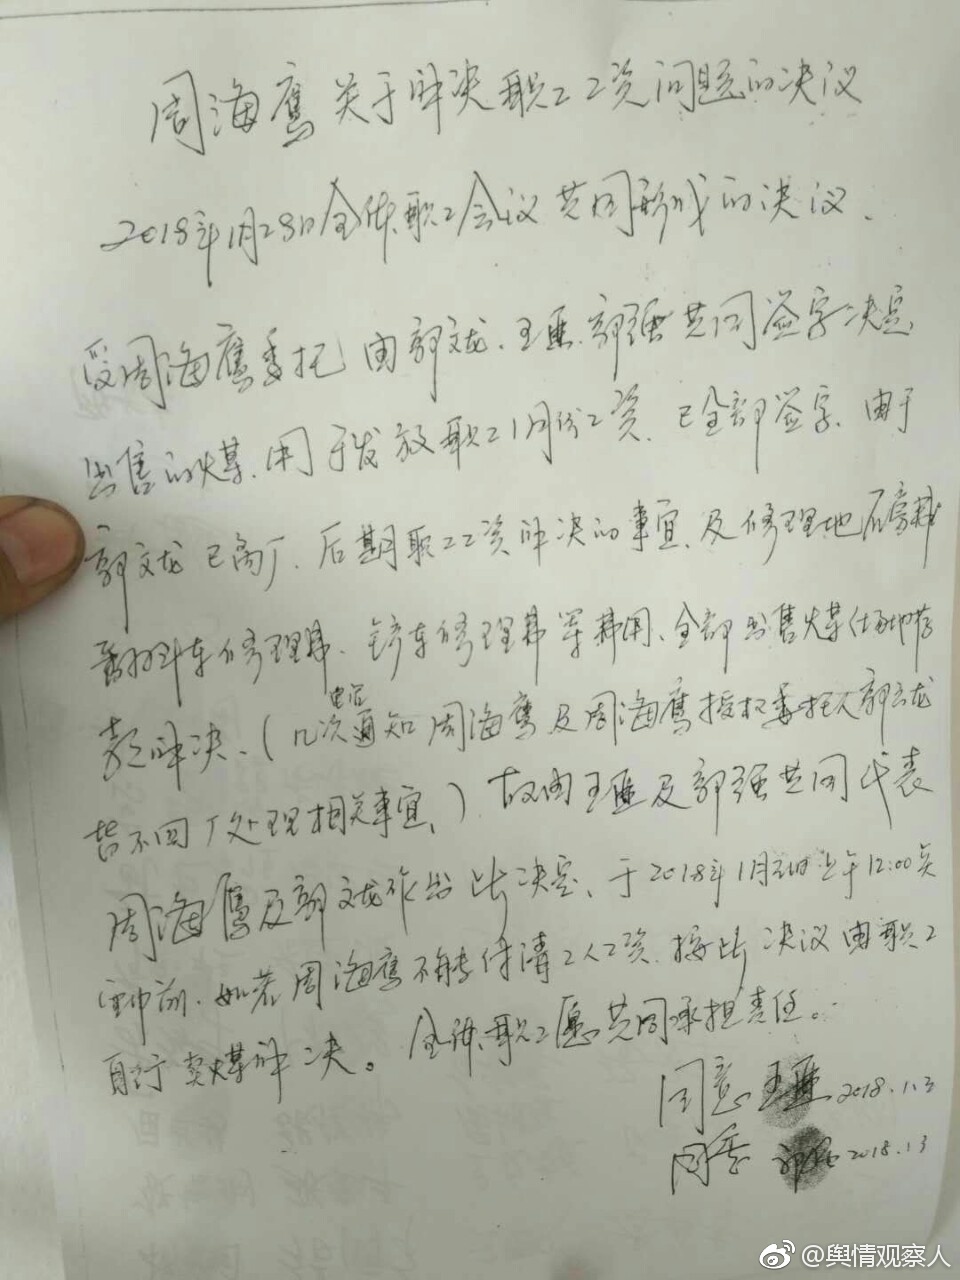 周海鹰关于解决职工工资问题的决议
2018年1月28日全体职工会议共同形成的决议、
受周海鹰委托由郭文龙、王匯、郭强共同签字决定
出售的煤、用于发放职工1月份工资、已全部签字、由于
郭文龙已离厂、后期职工工资解决的事宜、及修理地磅费
翻斗车修理费、铲车修理费等费用、全部出售煤(场地存
煤)解决、(几次电话通知周海鹰及周海鹰授权委托人郭文龙
皆不回厂处理相关事宜、)故由王匯及郭强共同代表
周海鹰及郭文龙作出此决定、于2018年1月31日上午12:00点
钟前、如若周海鹰不能付清工人工资、按此决议由职工
自行卖煤解决。全体职工愿共同承担责任。
同意 王匯 2018.1.3
同意 郭强 2018.1.3
@舆情观察人